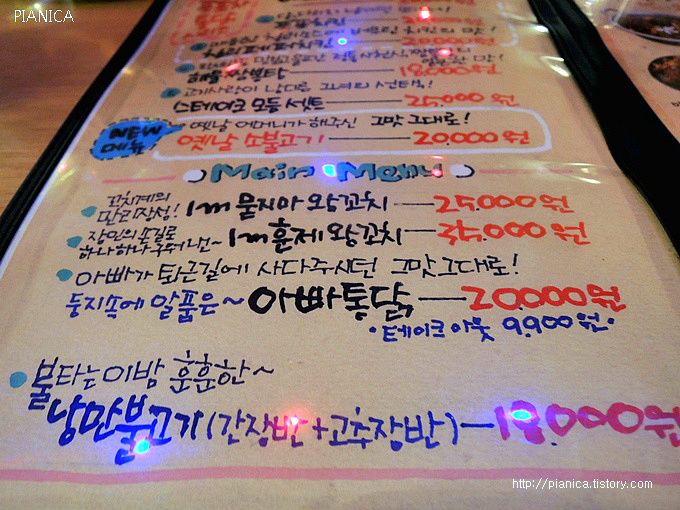 PIANICA
25,000원
치킨의 맛!
18,000원
스테이크 모듬 셋트 25,000원
NEW 메뉴! 옛날 어머니가 해주신 그맛 그대로!
옛날 소불고기 20,000원
Main Menu
꼬치계의 만리장성! 1m 묻지마 왕꼬치 25,000원
장인의 손길로 하나하나 구워낸~ 1m 훈제 왕꼬치 35,000원
아빠가 퇴근길에 사다주시던 그맛 그대로!
둥지속에 알품은~ 아빠통닭 20,000원
테이크아웃 9,900원
불타는 이밤 훈훈한~
낭만불고기(간장반+고추장반) 18,000원
http://pianica.tistory.com